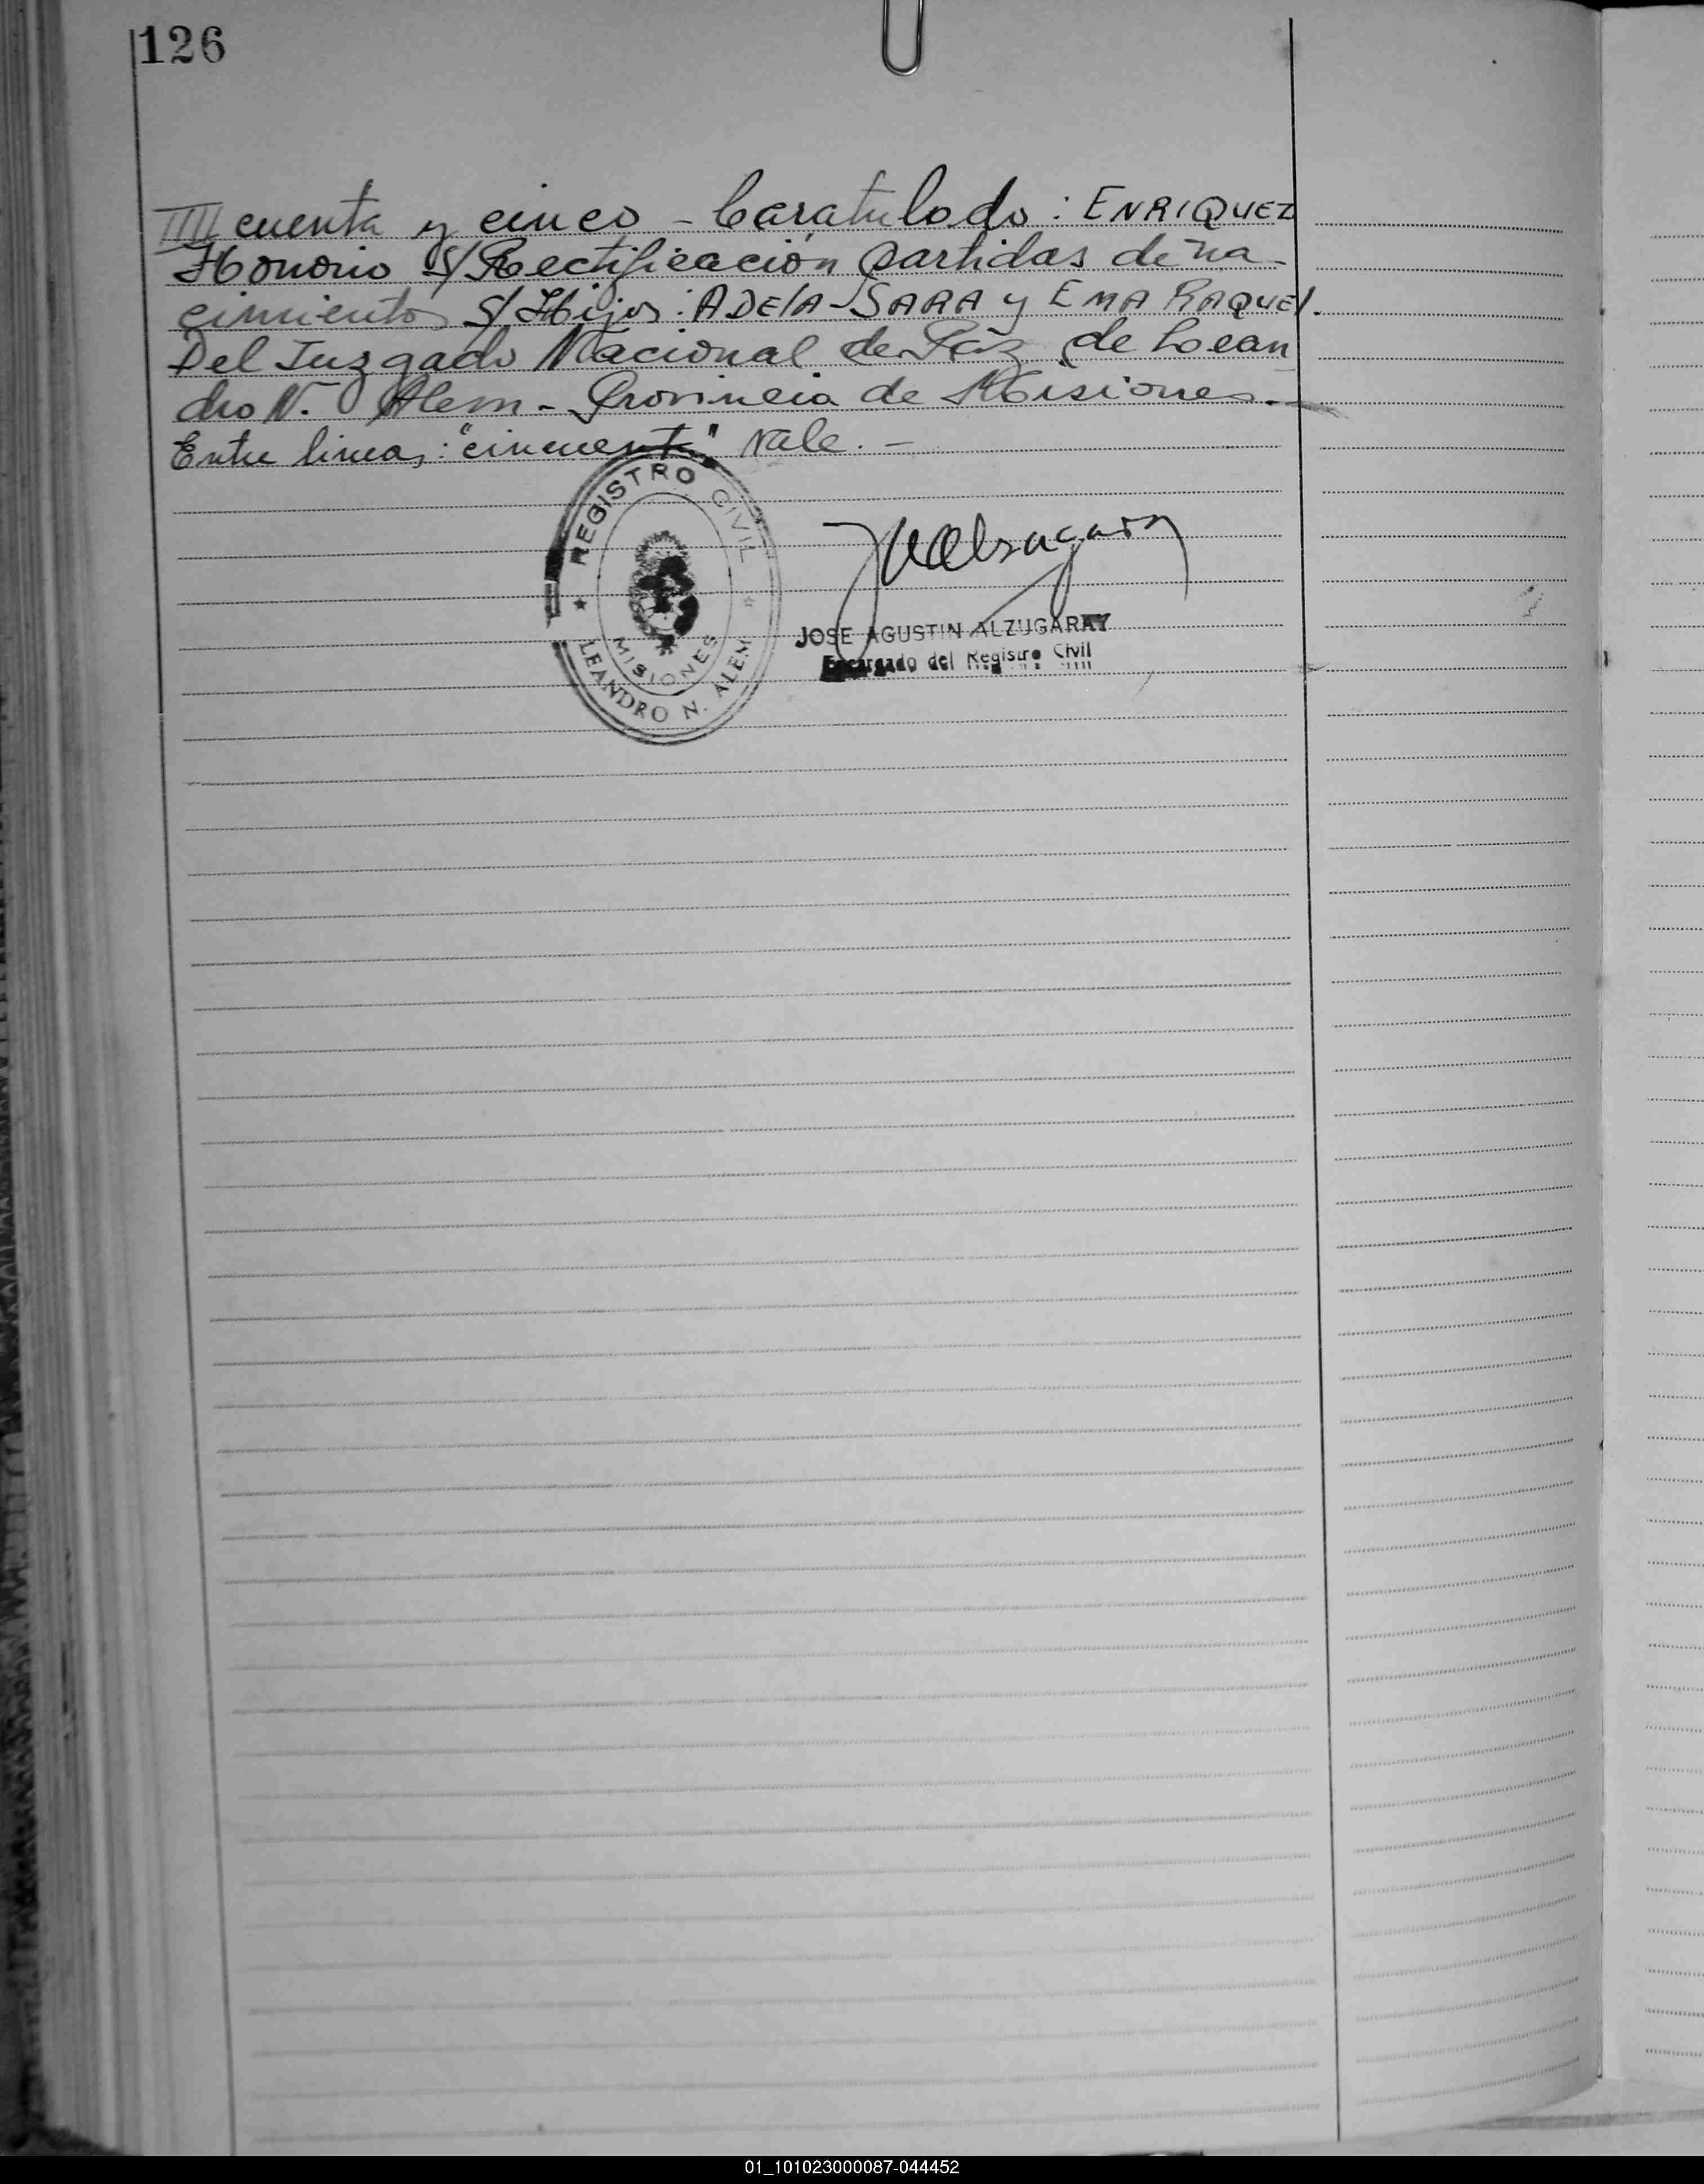 126
IIII cuenta y cinco - Caratulado: ENRIQUEZ
Honorio S/ Rectificación partidas de na-
cimientos S/ Hijos: ADElA-SARA y EMA RAQUEl.
Del Juzgado Nacional de Paz de Lean
dro N. Alem - Provincia de Misiones.-
Entre lineas: "cincuenta" Vale. -
REGISTRO CIVIL
MISIONES
LEANDRO N. ALEM
JOSE AGUSTIN ALZUGARAY
Encargado del Registro Civil
01_101023000087-044452